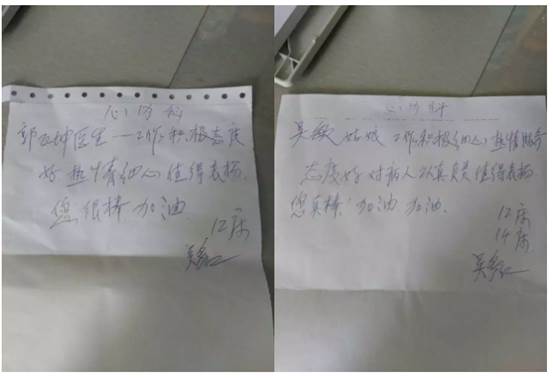 心内科
郭医生 工作积极态度
好 热情细心 值得表扬
您很棒 加油
12床
心内科
吴敏姑娘 工作积极细心 热情服务
态度好 对病人认真负责 值得表扬
您真棒 加油 加油
12床
14床